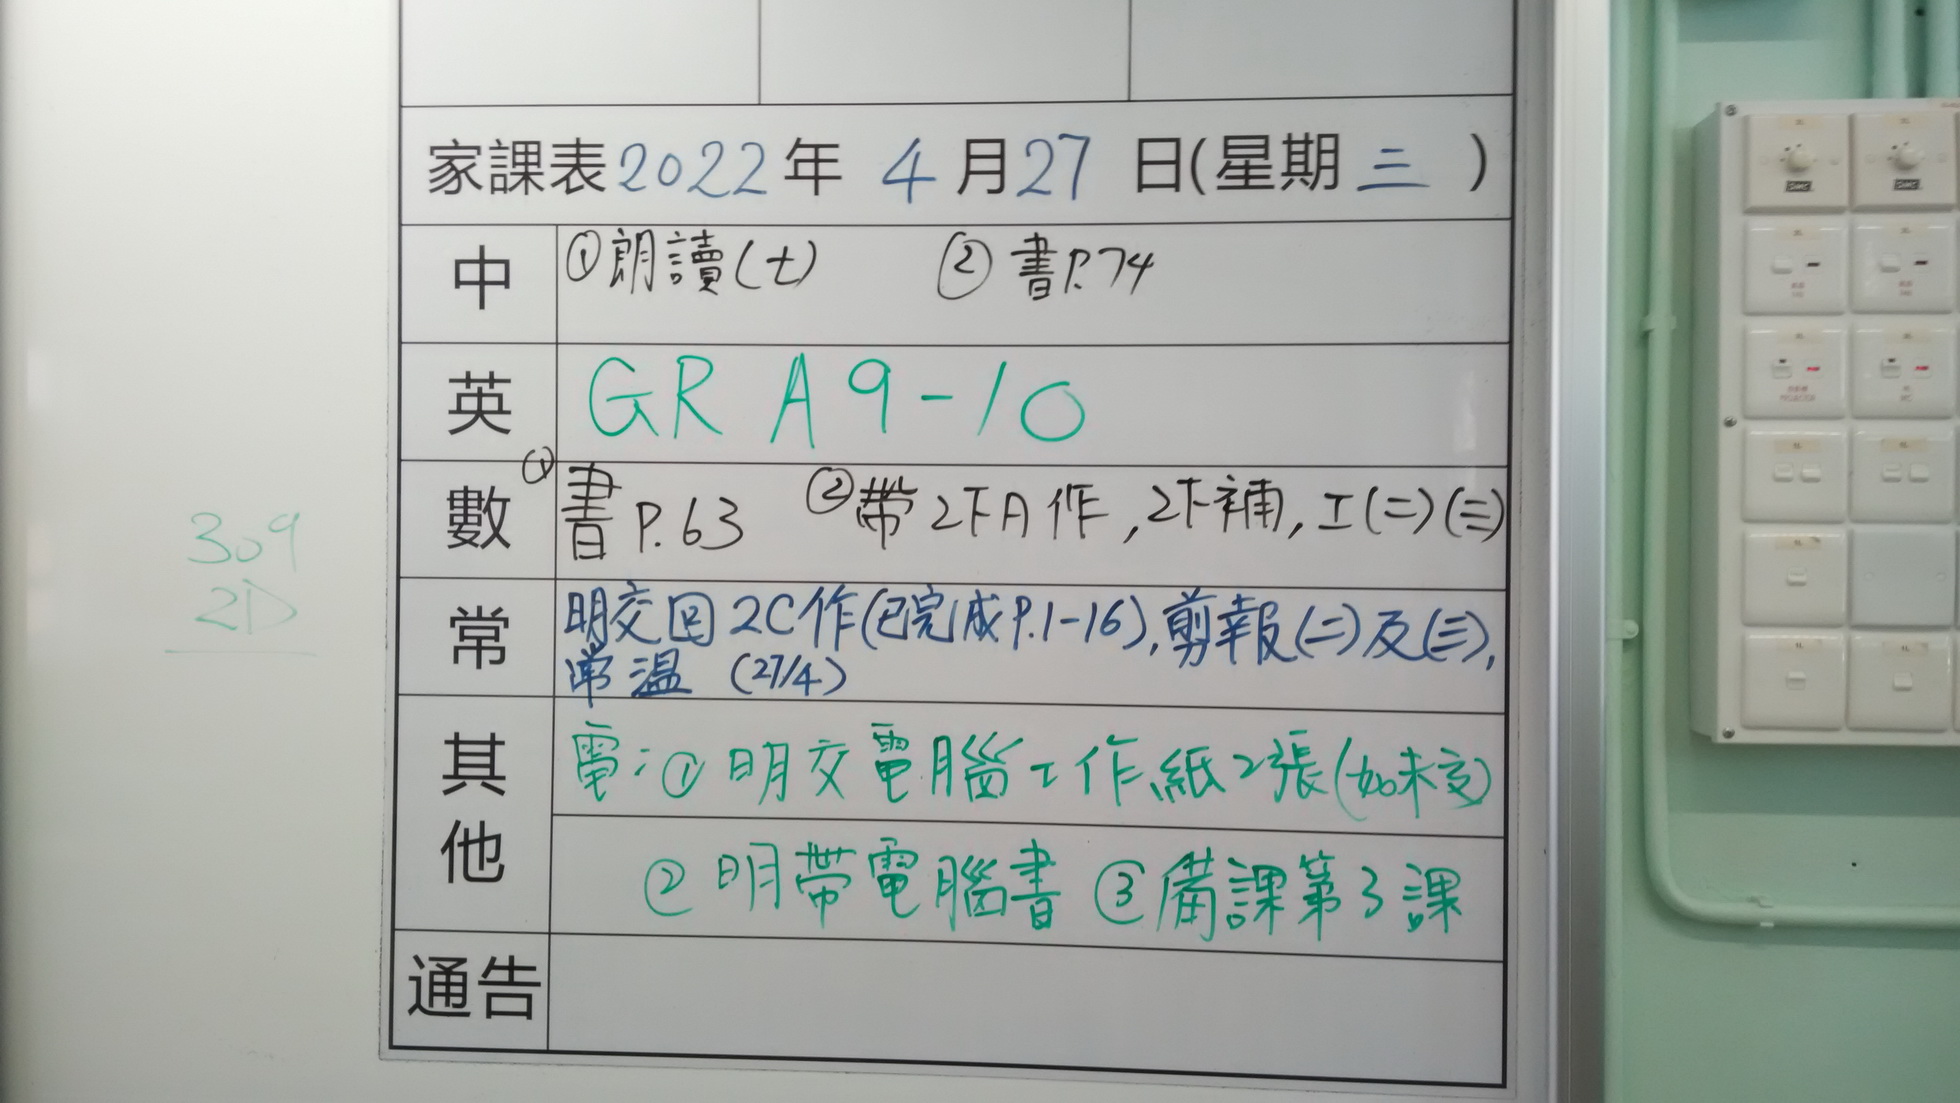 家課表2022年 4月27日(星期三)
中 ①朗讀(七) ②書P.74
英 GR A9-10
數 ①書P.63 ②帶2下A作,2下補,工(二)(三)
常 明交回2C作(已完成P.1-16),剪報(二)及(三),
常溫 (27/4)
其他 電:①明交電腦工作紙2張(如未交)
②明帶電腦書 ③備課第3課
通告
309
2D